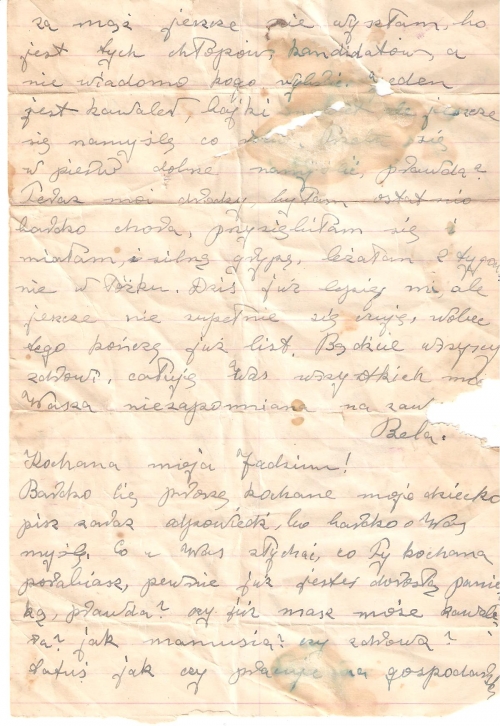 za mąż jeszcze nie wyszłam, bo
jest tych chłopów, kandidatów, a
nie wiadomo kogo Jeden
jest kawaler, bajki jeszcze
się namyślę co się
w pierw dobrze prawda?
Teraz moi drodzy, byłam ostatnio
bardzo chora, przyziębiłam się i
miałam, i silną grypę, leżałam 2 tygod
nie w łóżku. Dziś już lepiej mi, ale
jeszcze nie zupełnie się czuję, wobec
tego kończę już list. Bądźcie wszyscy
zdrowi, całuję Was wszystkich mo
Wasza niezapomniana na zaw
Bela.
Kochana moja Jadziuniu!
Bardzo Cię proszę kochane moje dziecko
pisz zaraz odpowiedź, bo bardzo o Was
myślę. Co u Was słychać, co Ty kochana
porabiasz, pewnie już jesteś dorosłą panien
ką, prawda? czy już masz może kawale
ra? jak mamusia? czy zdrowa?
tatuś jak czy pracuje na gospodarce